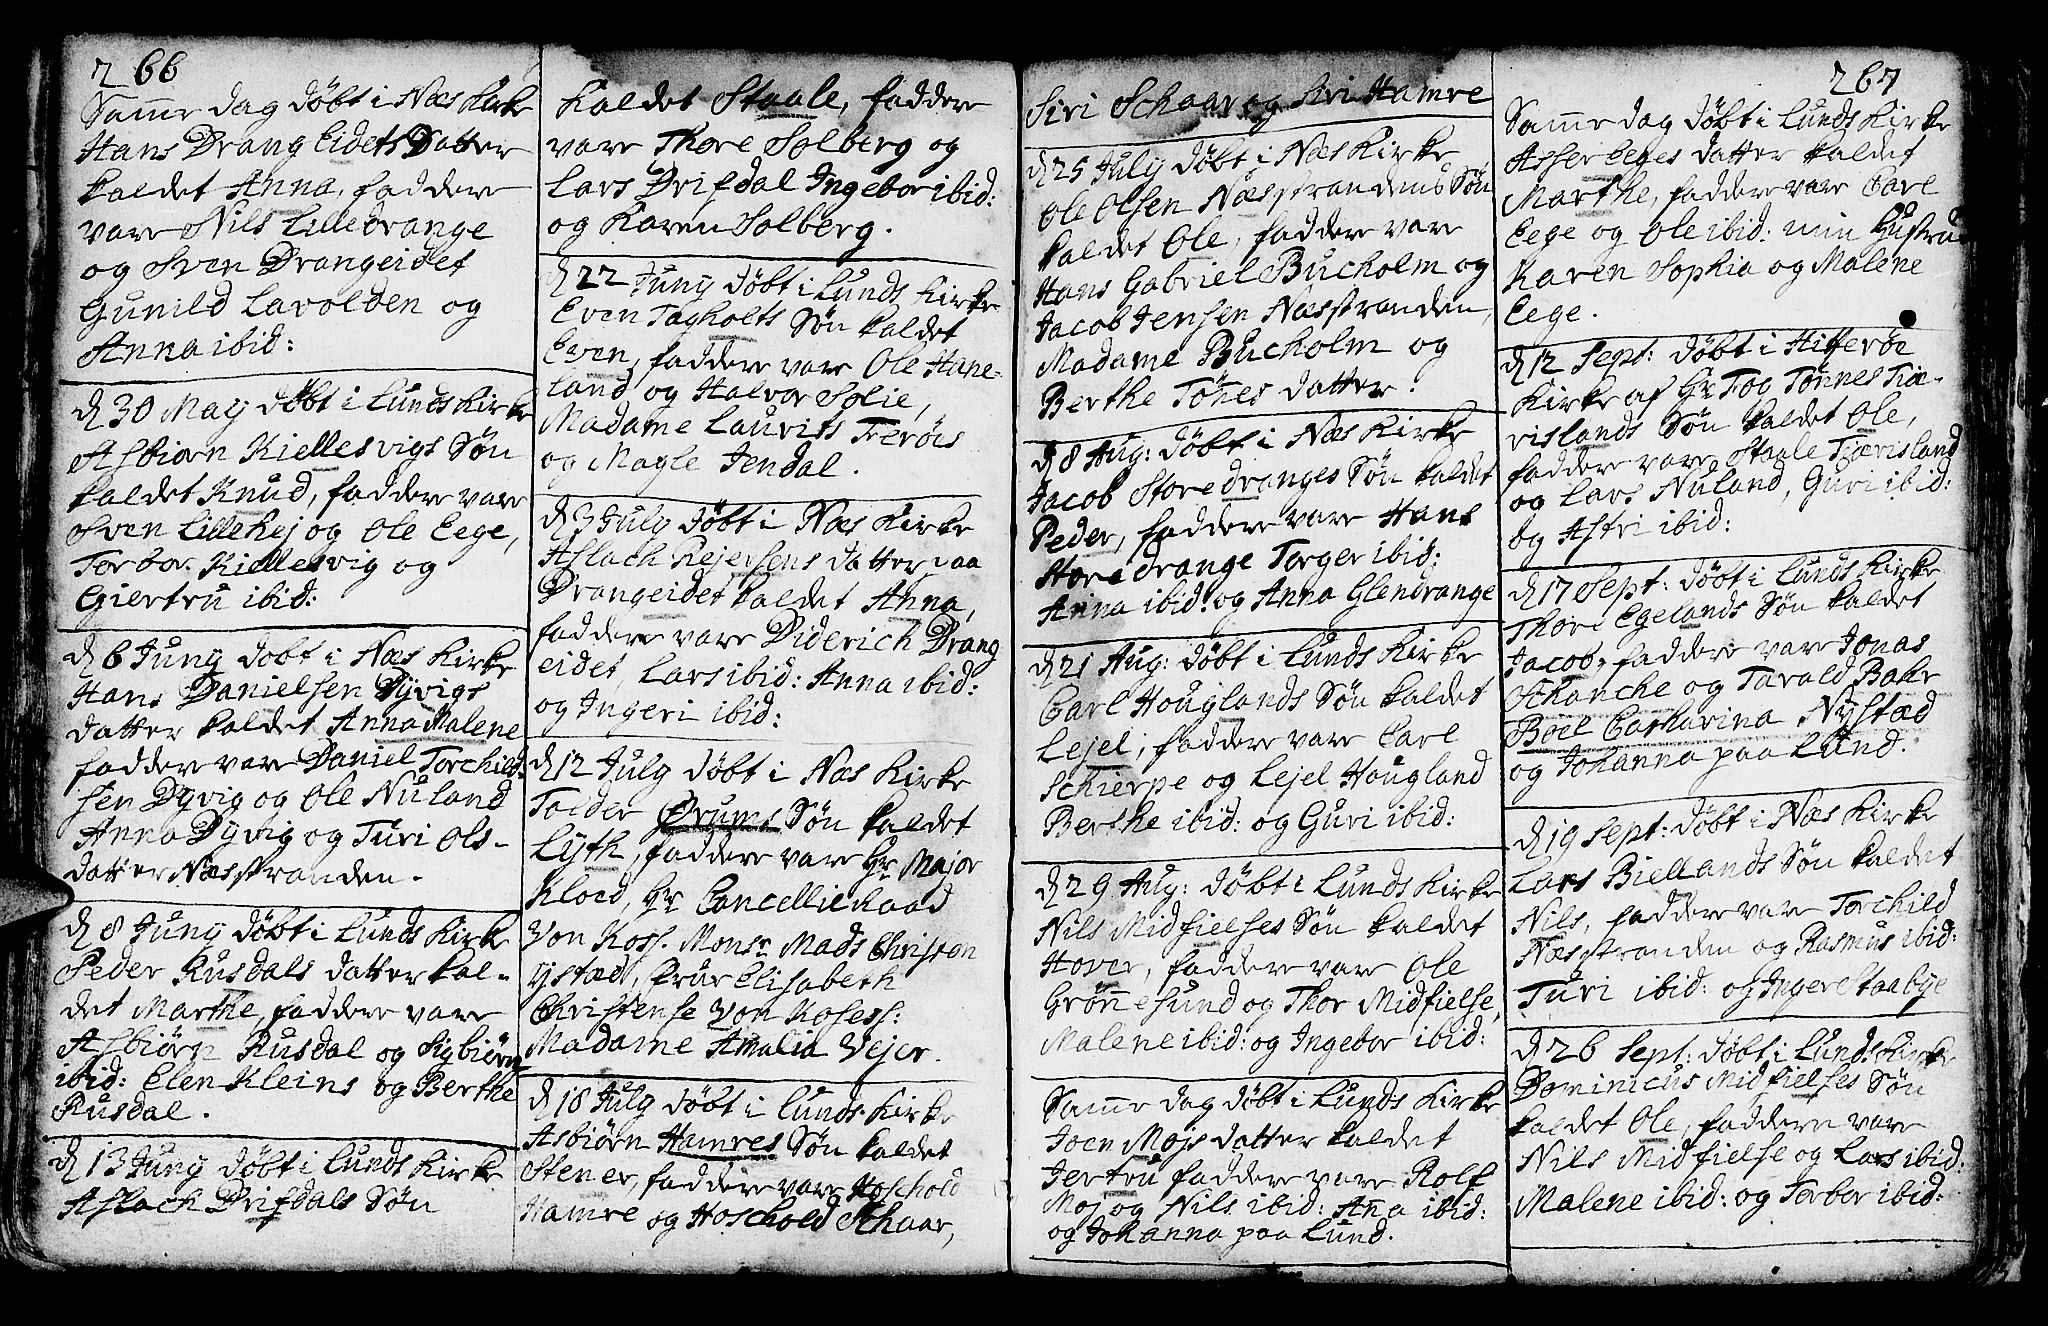 266
Same dag döbt i Næs Kirke
Hans Drang Eidets Datter
kaldet Anna, faddere
vare Nils Lilledrange
og Sven Drangeidet
Gunild Lavolden og
Anna ibid:
d 30 May döbt i Lunds Kirke
Asbiörn Kiellesvigs Sön
kaldet Knud, faddere vare
Sven Lillehej og Ole Eege,
Torbor Kiellesvig og
Giertru ibid:
d 6 Juny döbt i Næs Kirke
Hans Danielsen Dyvigs
datter kaldet Anna Malene
faddere vare Daniel Torchild-
sen Dyvig og Ole Nuland
Anna Dyvig og Turi Ols-
datter Næsstranden.
d 8 Juny döbt i Lunds Kirke
Peder Rusdals datter kal-
det Marthe, faddere vare
Asbiörn Rusdal og Sigbiörn
ibid: Elen Kleins og Berthe
Rusdal.
d 13 Juny döbt i Lunds Kirke
Aslach Drifdals Sön
kaldet Staale, faddere
vare Thore Solberg og
Lars Drifdal Ingebor ibid:
og Karen Solberg.
d 22 Juny döbt i Lunds Kirke
Even Tagholts Sön kaldet
Even, faddere vare Ole Hane-
land og Halvor Solie,
Madame Lauriss Trröes
og Magle Jendal.
d 3 July döbt i Næs Kirke
Aslach Rejersens datter paa
Drangeidet kaldet Anna,
faddere vare Diderich Drang
eidet, Lars ibid: Anna ibid:
og Ingeri ibid:
d 12 July döbt i Næs Kirke
Tolder Ørums Sön kaldet
Lyth, faddere vare Hr Major
Kloed, Hr Cancellieraad
Von Koss. Monsr Mads Christen
ystæd, Frue Elisabeth
Christense Von Kosess:
Madame Amalia Vejer.
d 18 July döbt i Lunds Kirke
Asbiörn Hamres Sön kaldet
Stener, faddere vare Hoschold
Hamre og Hoschold Schaar,
Siri Schaar og Siri Hamre
d 25 July döbt i Næs Kirke
Ole Olsen Næsstrandens Sön
kaldet Ole, faddere vare
Hans Gabriel Bucholm og
Jacob Jensen Næsstranden,
Madame Bucholm og
Berthe Tönes datter.
d 8 Aug: döbt i Næs Kirke
Jacob Storedranges Sön kaldet
Peder, faddere vare Hans
Storedrange Torger ibid:
Anna ibid: og Anna Glendrange
d 21 Aug: döbt i Lunds Kirke
Carl Houglands Sön kaldet
Lejel, faddere vare Carl
Schierpe og Lejel Hougland
Berthe ibid: og Guri ibid:
d 29 Aug: döbt i Lunds Kirke
Nils Midfielses Sön kaldet
Hover, faddere vare Ole
Grönnesund og Thor Midfielse,
Malene ibid: og Ingebor ibid:
Same dag döbt i Lunds Kirke
Joen Mojs datter kaldet
Jertru faddere vare Rolf
Moj og Nils ibid: Ana ibid:
og Johanna paa Lund.
267
Same dag döbt i Lunds Kirke
Asser Eeges datter kaldet
Marthe, faddere vare Carl
Eege og Ole ibid: min Hustrue
Karen Sophia og Malene
Eege.
d 12 Sept: döbt i Hitteröe
Kirke af Hr Foo Tönnes Tiæ-
rislands Sön kaldet Ole,
faddere vare Staale Tiærisland
og Lars Nuland, Guri ibid:
og Astri ibid:
d 17 Sept: döbt i Lunds Kirke
Thore Egelands Sön kaldet
Jacob, faddere vare Jonas
Schanche og Tarald Bakr
Boel Catharina Nystæd
og Johanna paa Lund.
d 19 Sept: döbt i Næs Kirke
Lars Biellands Sön kaldet
Nils, faddere vare Torchild
Næsstranden og Rasmus ibid:
Turi ibid: og Inger Staabye
d 26 Sept: döbt i Lunds Kirke
Dominicus Midfielses Sön
kaldet Ole, faddere vare
Nils Midfielse og Lars ibid:
Malene ibid: og Torbor ibid: